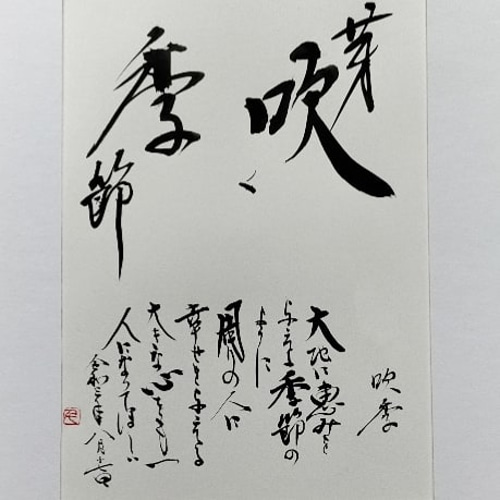 芽吹く
季節
吹季
大地に恵みを
与える季節の
ように
周の人に
幸せを与える
大きな心をもつ
人になってほしい
令和 年 八月